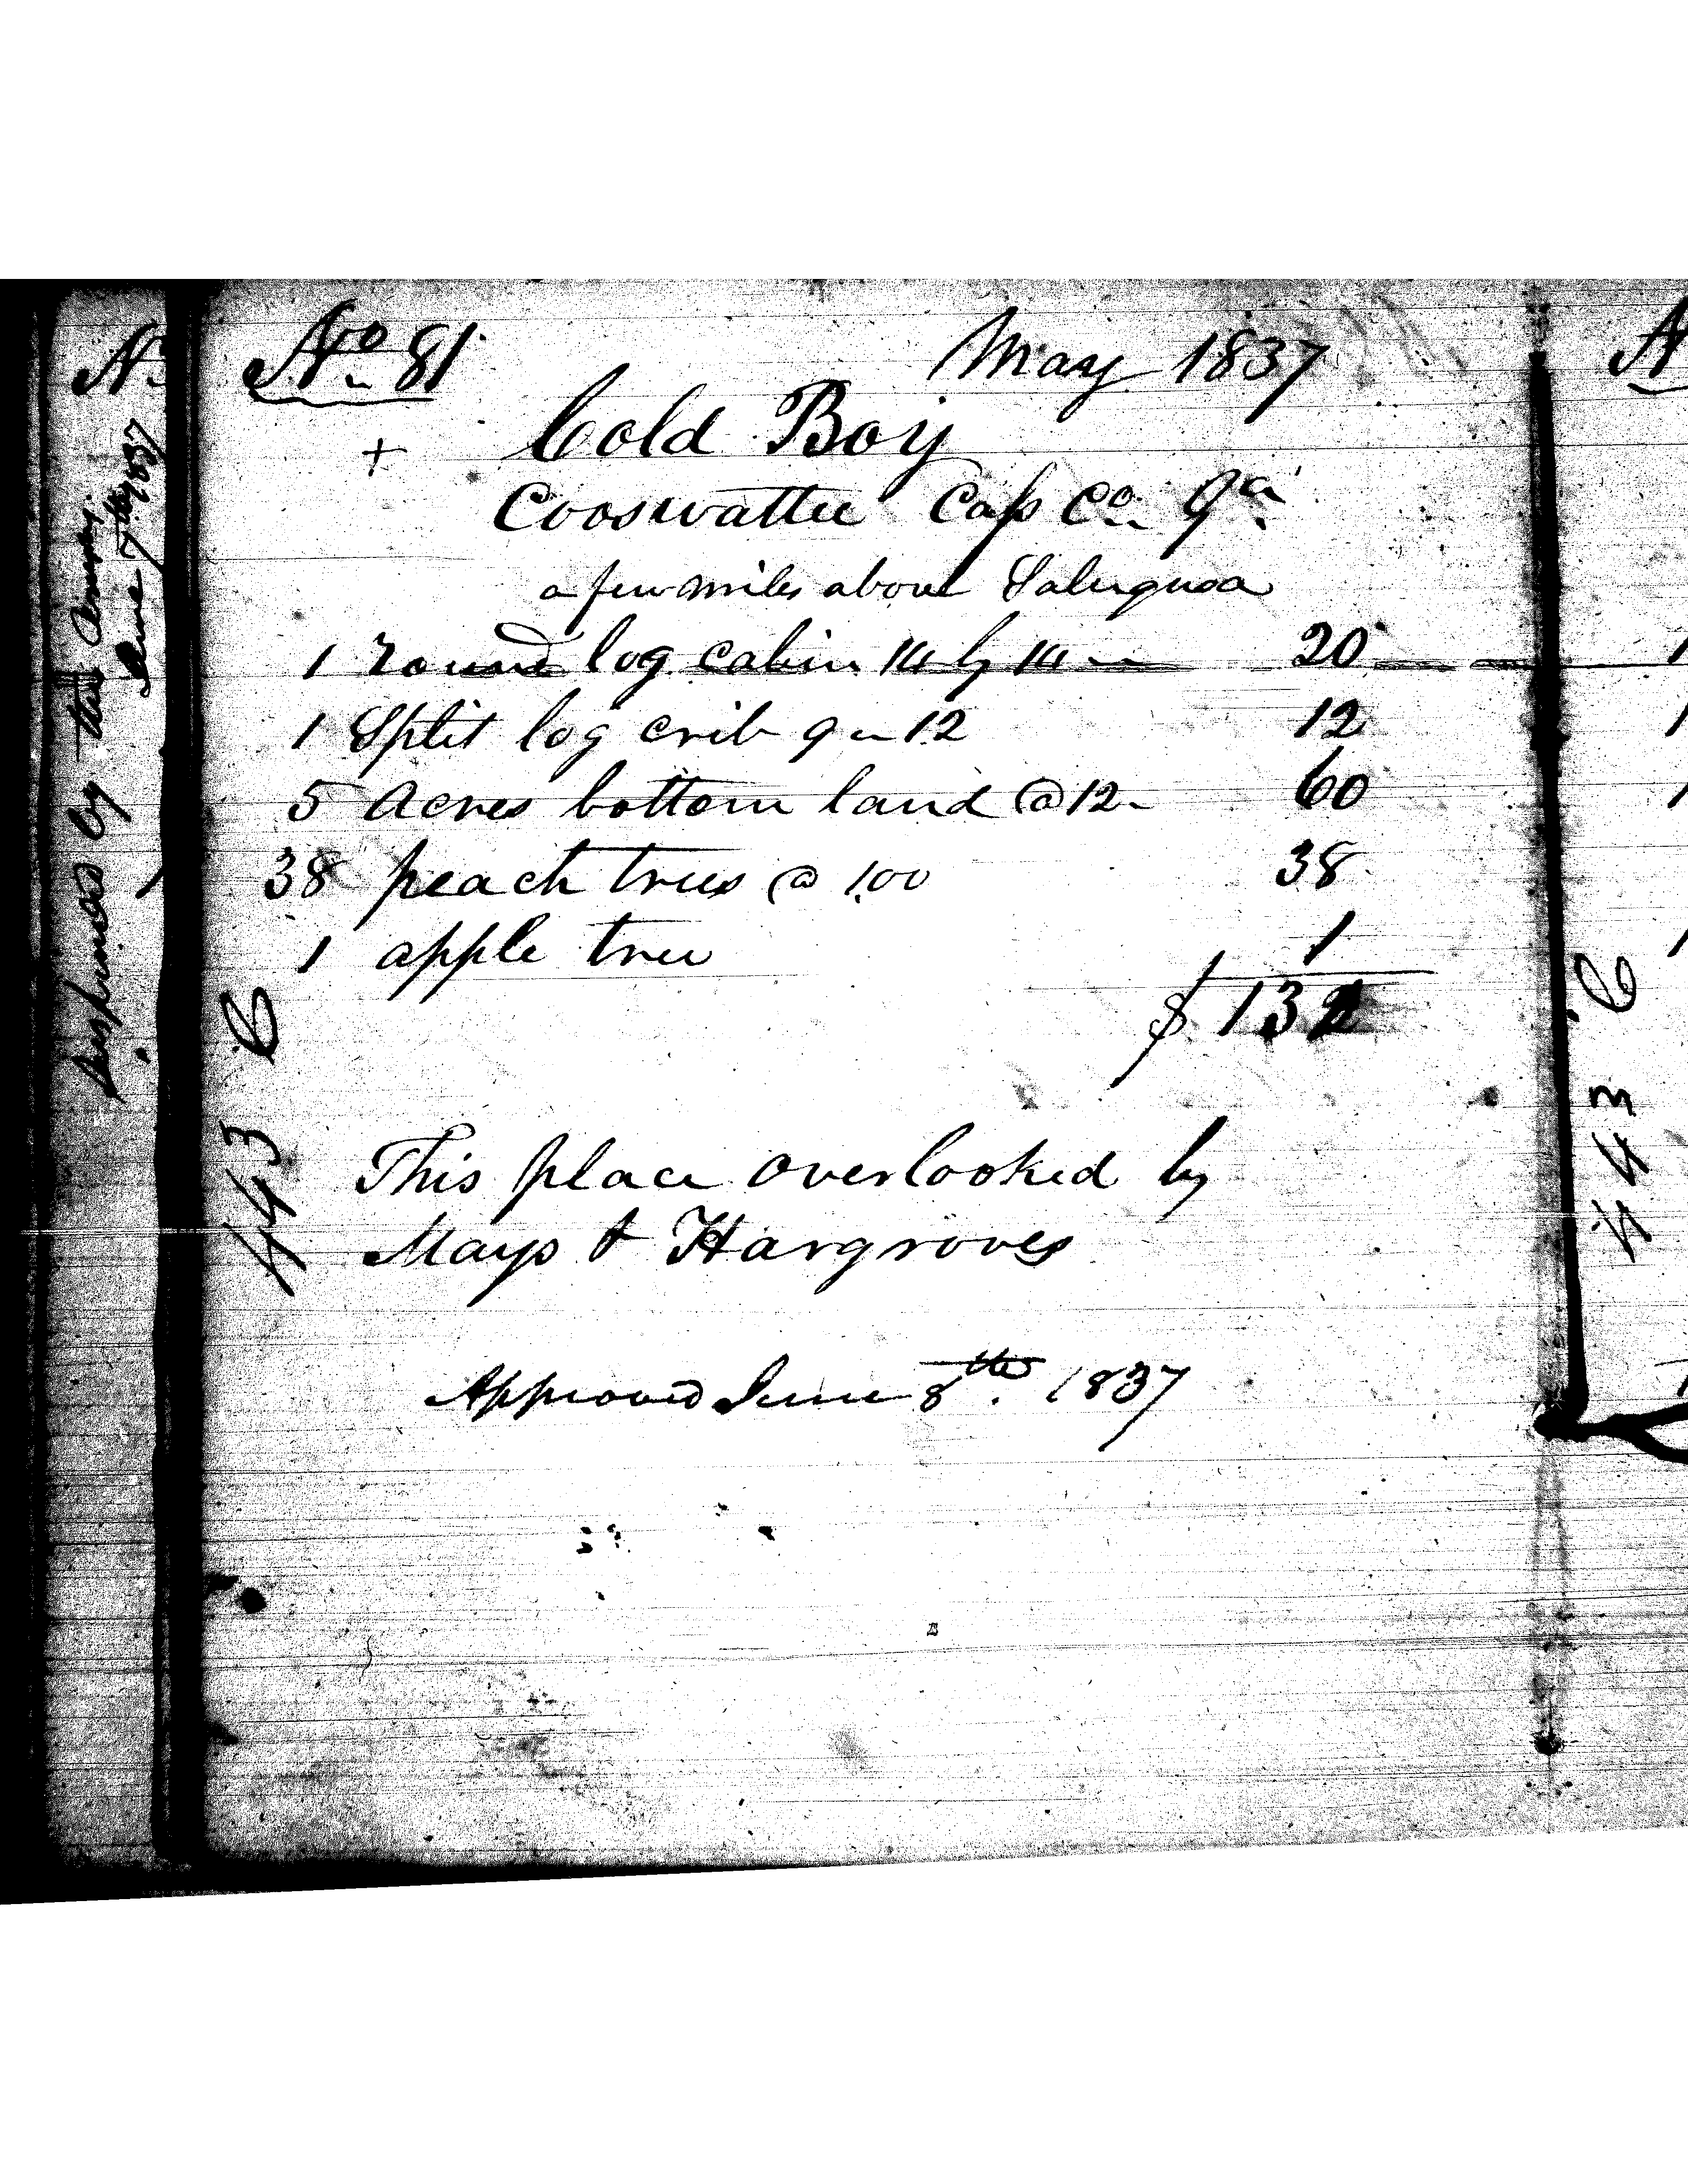 No 81
May 1837
+ Cold Boy
Cooswattee Cass Co. Ga
a few miles above
1 round log cabin 14 by 14 20
1 Split log crib 9 by 12 12
5 Acres bottom land @ 12 60
38 peach trees @ 1.00 38
1 apple tree 1
$ 132
This place overlooked by
Mays & Hargroves
Approved June 8th. 1837
443 C
by this
June 7th 1837
443 C